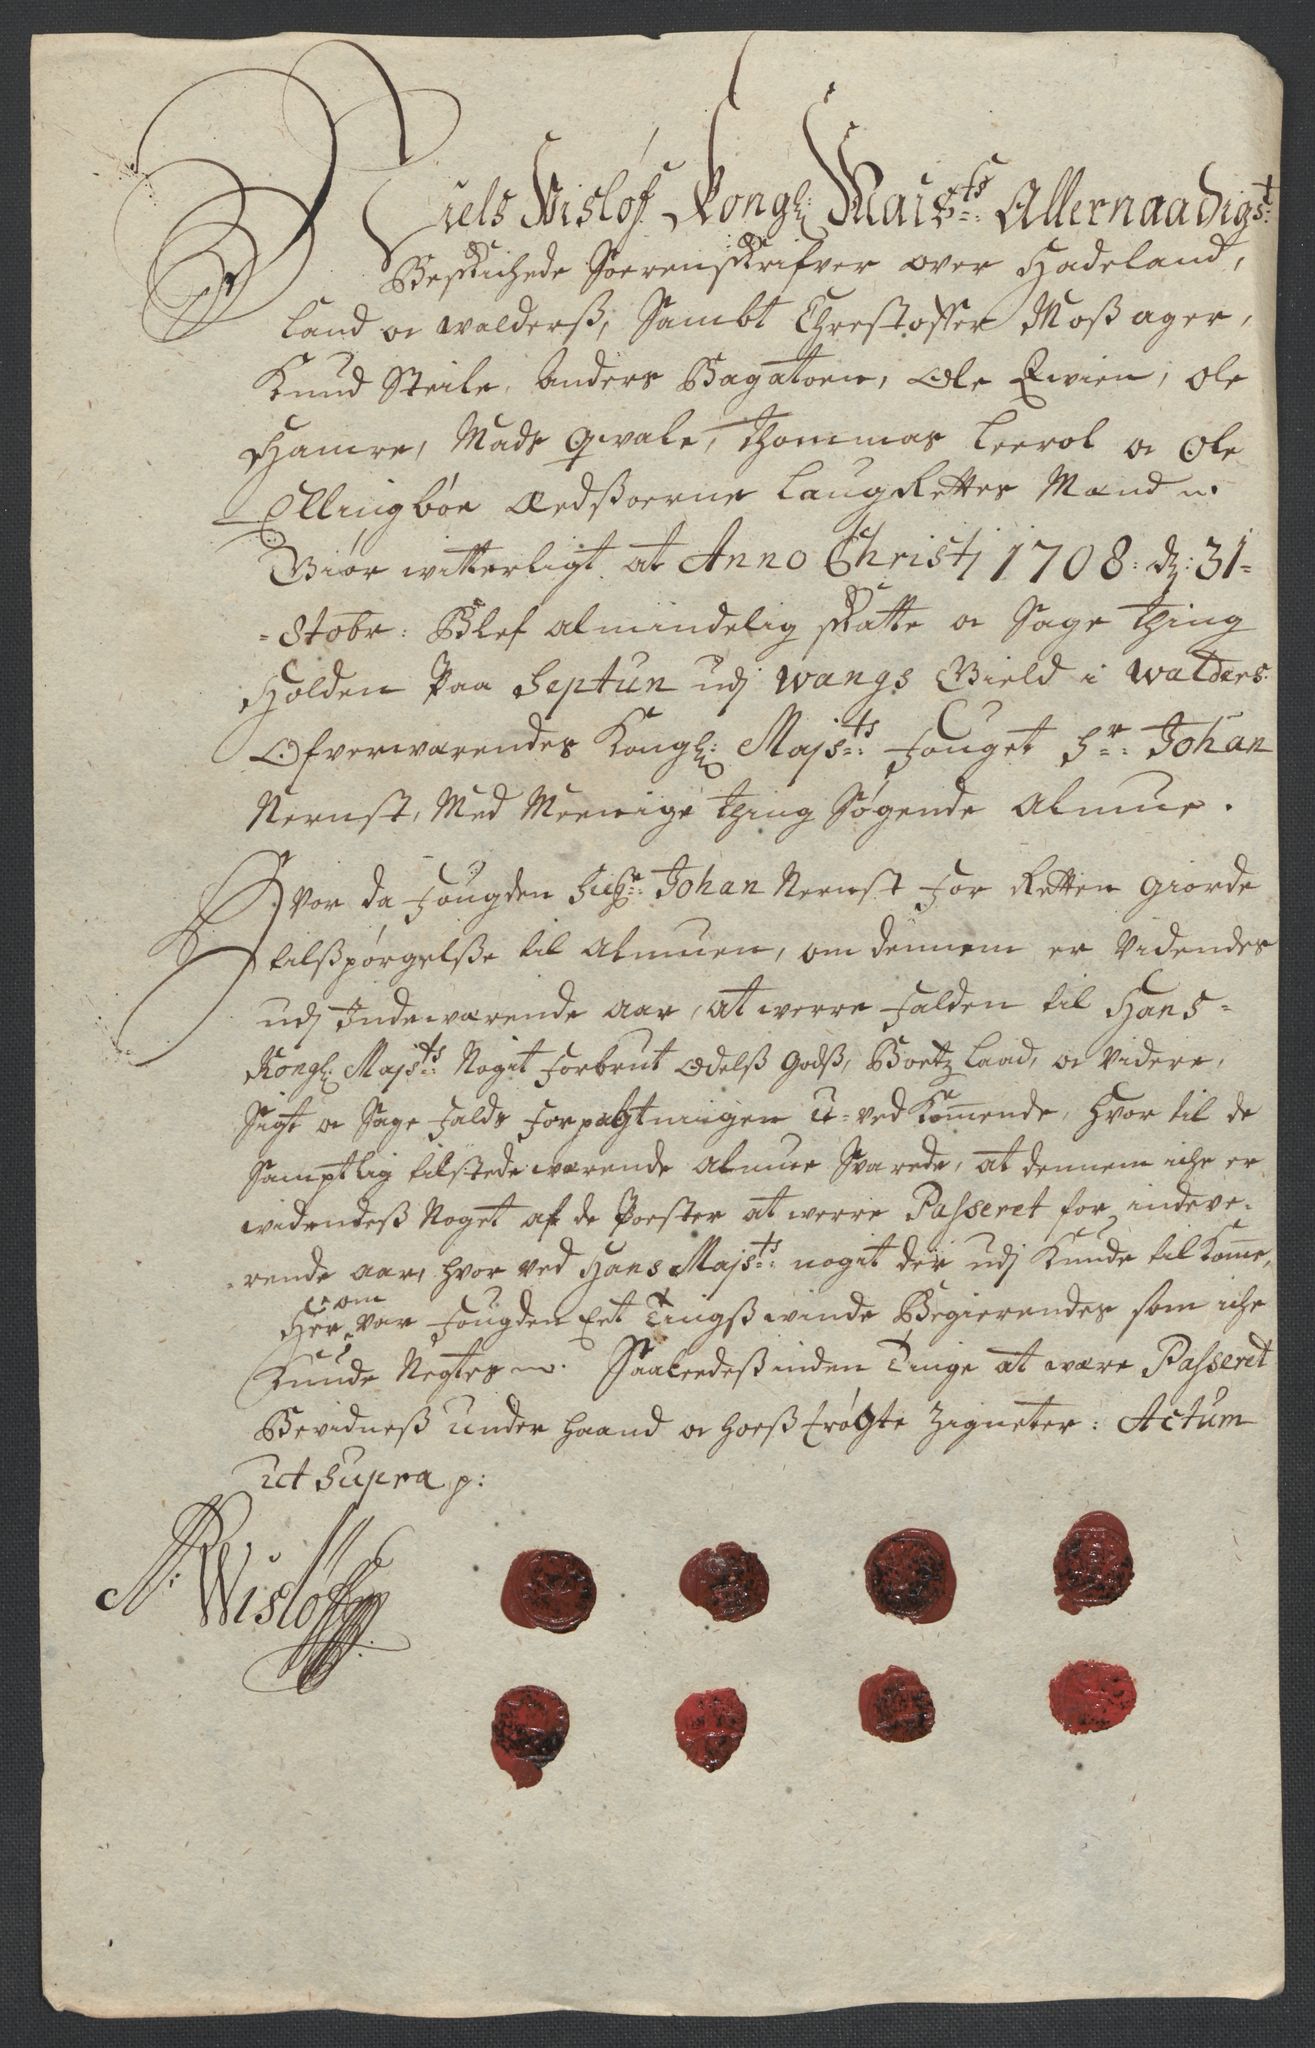 Niels Wisløf Kongl: Maists: Allernaadigst:
Beskichede Soerenskrifver over Hadeland,
Land oc Walderß, Sambt Christoffer Moßager,
Knud Steile, Anders Bagatoen, Ole Qvien, Ole
Hamre, Mads Qvale, Thommas Leerol oc Ole
Ellingbøe Ædßoerne LaugRettes Mænd
Giør witterligt at Anno Christi 1708: d: 31-
-8tobr: Blef almindelig Skatte oc Sage Thing
Holden Paa Septun udj Wangs Gield i Walders
Ofverwærendes Kongl: Majsts: Fouget Sr: Johan
Nernst, Med Meenige Thing Søgende Almue.
Hvor da Fougden Sieur: Johan Nernst For Retten giorde
tilßpørgelße til Almuen, om dennem er Videndes
udj Indewærende aar, at werre Falden til Hans-
Kongl: Majsts: Nogit Forbrut Odelß Godß, Boetz laad, oc Videre,
Sigt oc Sage Falds Forpagtningen U-ved Kommende, hvor til de
Samptlig tilstede wærende Almue Svarede, at dennem iche er
widendeß Noget af de Poester at werre Passeret for indeve-
-rende aar, hvor ved Hans Majsts: nogit der udj Kunde tilKomme,
Her om var Fougden Eet Tingßwinde Begierendes som iche
Kunde Negtes Saaleedeß inden Tinge at være Passeret
Bevidneß under haand oc hoeß trøgte Zigneter: Actum
ut supra p:
N: Wisløff